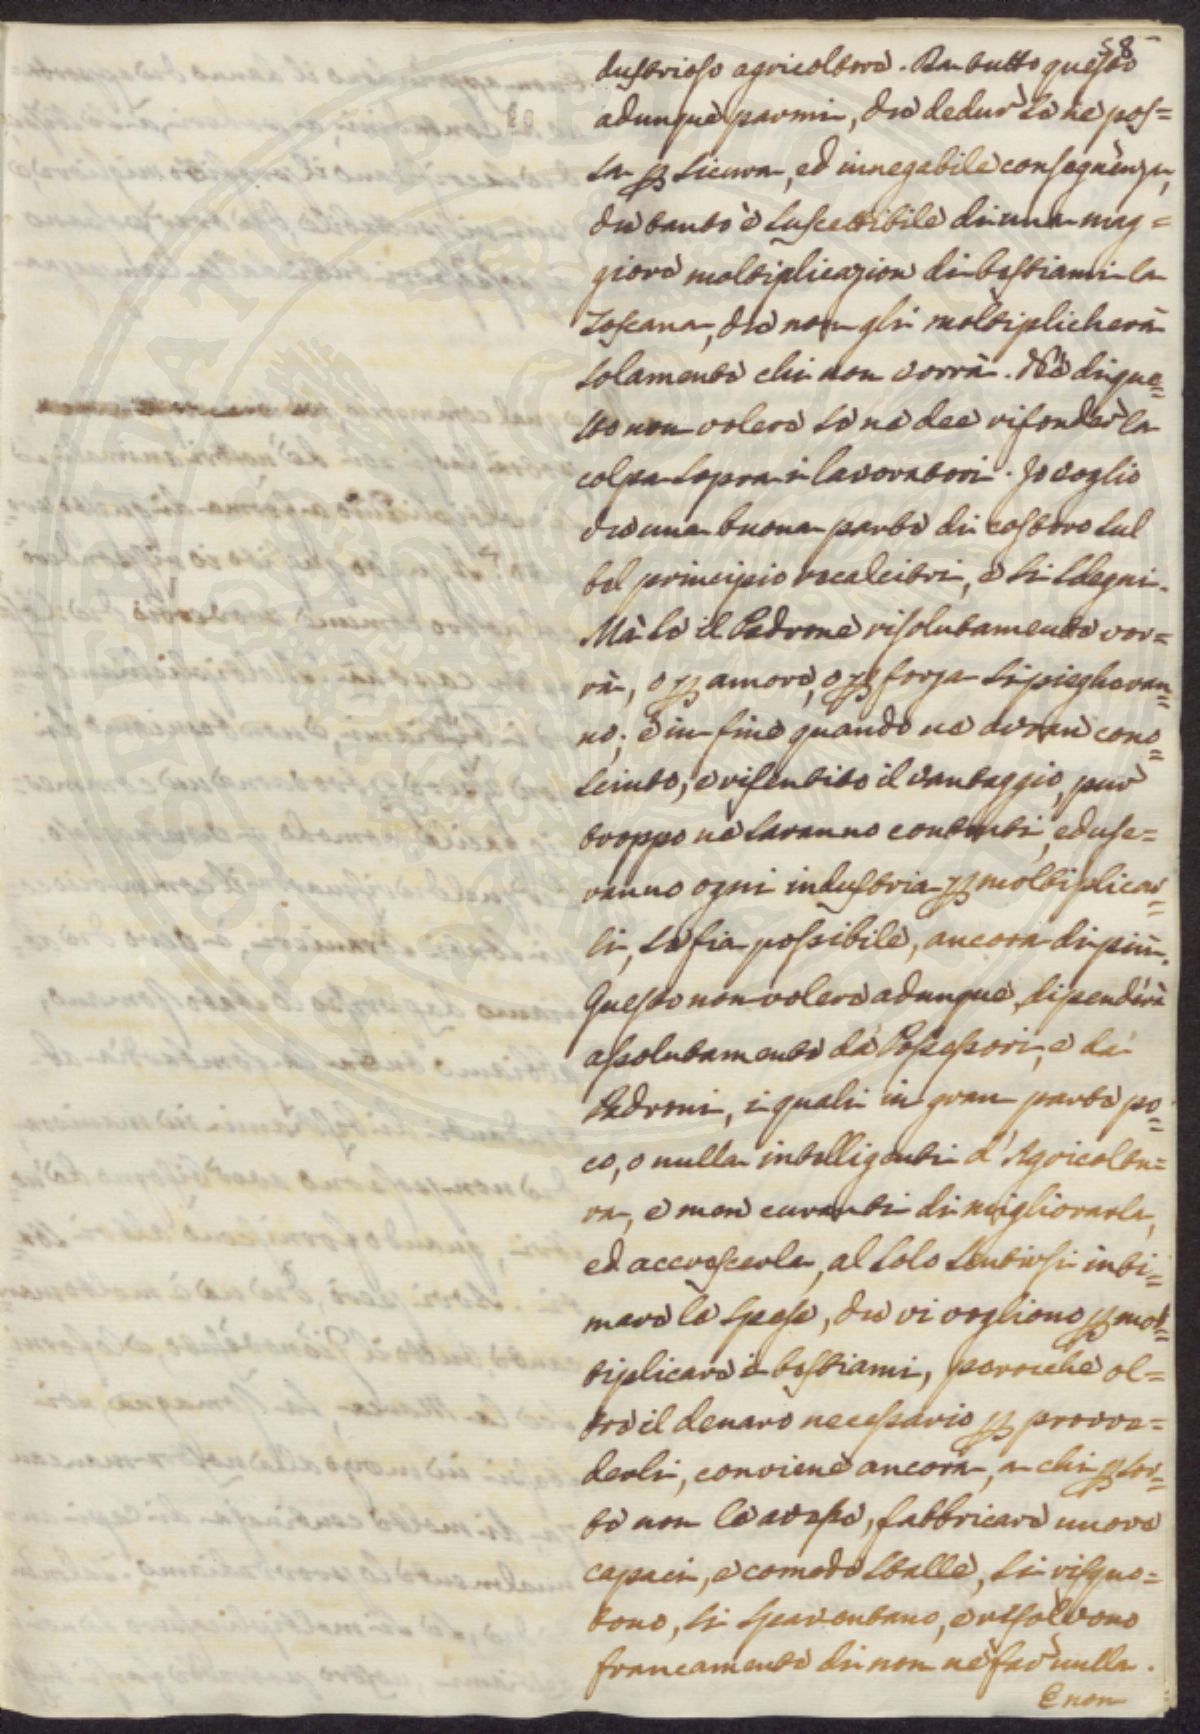 58
dustrioso agricoltore. Da tutto questo
adunque parmi, che dedur se ne pos=
sa ꝑ sicura, ed innegabile conseguenza,
che tanto è suscettibile di una mag=
giore moltiplicazion di bestiami la
Toscana, che non gli moltiplicherà
solamente chi non vorrà. Nè di que=
sto non volere se ne dee rifonder la
colpa sopra i lavoratori. Io voglio
che una buona parte di costoro sul
bel principio recalcitri, e si sdegni.
Mà se il Padrone risolutamente vor=
rà, o ꝑ amore, o ꝑ forza si piegheran=
no; e in fine quando ne avran cono=
sciuto, e risentito il vantaggio, pur
troppo ne saranno contenti, ed use=
ranno ogni industria ꝑ moltiplicar=
li, se fia possibile, ancora di più.
Questo non volere adunque, dipenderà
assolutamente dà Possessori, e dà
Padroni, i quali in gran parte po=
co, o nulla intelligenti d'Agricoltu=
ra, e men curanti di migliorarla,
ed accrescerla, al solo sentirsi inti=
mare le spese, che vi vogliono ꝑ mol=
tiplicare i bestiami, perocchè ol=
tre il denaro necessario ꝑ provve=
derli, conviene ancora, a chi ꝑ sor=
te non le avesse, fabbricare nuove
capaci, e comode stalle, si riscuo=
tono, si spaventano, e risolvono
francamente di non ne far nulla.
E non